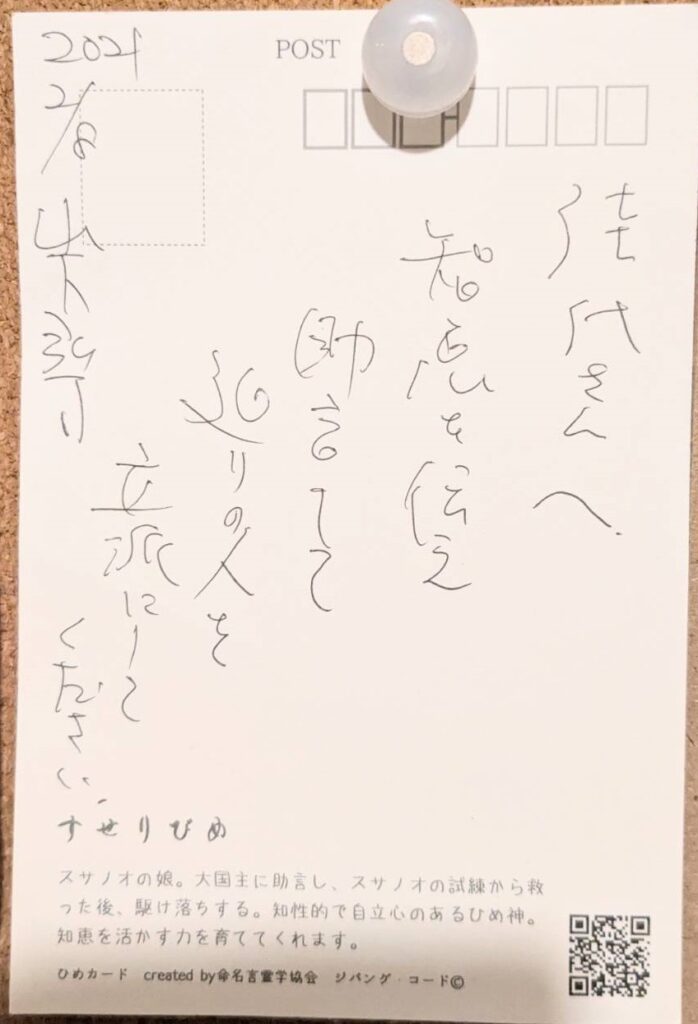 POST
佳代さんへ
智恵を伝え
助言して
巡りの人を
立派にして
ください
2021
2/8
山下弘司
すせりびめ
スサノオの娘。大国主に助言し、スサノオの試練から救
った後、駆け落ちする。知性的で自立心のあるひめ神。
知恵を活かす力を育ててくれます。
ひめカード created by命名言霊学協会 ジパング・コード©